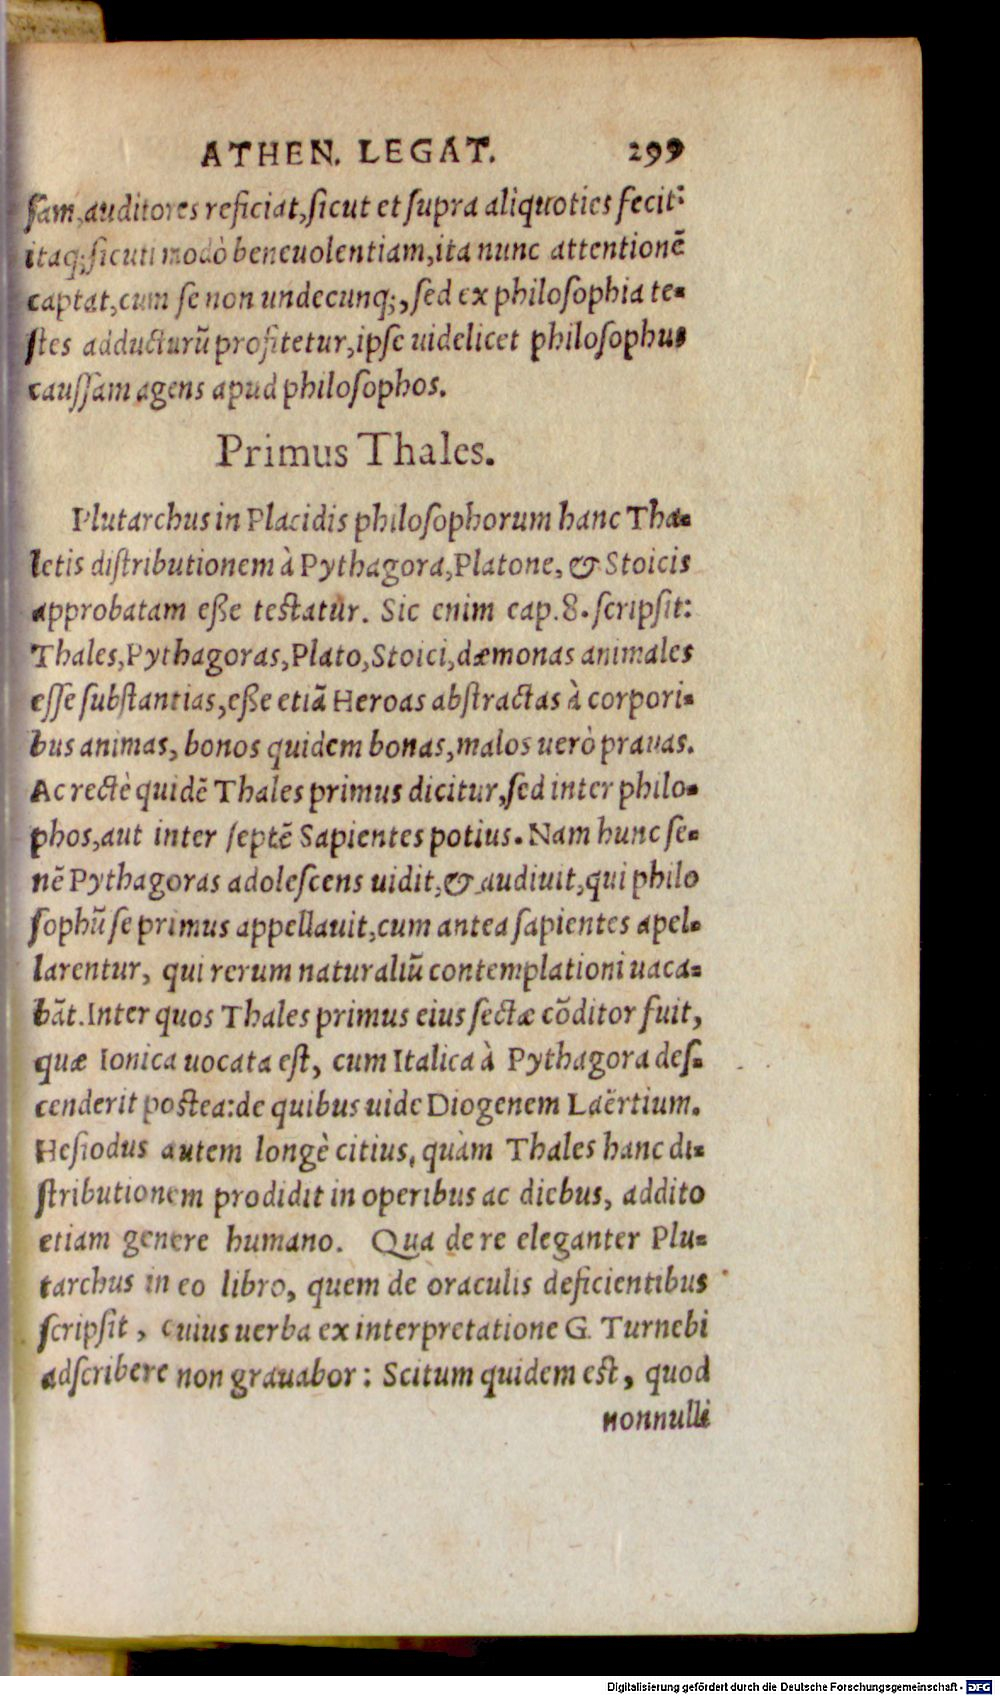 ATHEN. LEGAT. 299
ſam, auditores reficiat, ſicut et ſupra aliquoties fecit:
itaq; ſicuti modò beneuolentiam, ita nunc attentionẽ
captat, cum ſe non undecunq;, ſed ex philoſophia te-
ſtes adducturũ profitetur, ipſe uidelicet philoſophus
cauſſam agens apud philoſophos.
Primus Thales.
Plutarchus in Placidis philoſophorum hanc Tha-
letis diſtributionem à Pythagora, Platone, & Stoicis
approbatam eße teſtatur. Sic enim cap. 8. ſcripſit:
Thales, Pythagoras, Plato, Stoici, dæmonas animales
eſſe ſubſtantias, eße etiã Heroas abſtractas à corpori-
bus animas, bonos quidem bonas, malos uerò prauas.
Ac rectè quidẽ Thales primus dicitur, ſed inter philo-
phos, aut inter ſeptẽ Sapientes potius. Nam hunc ſe-
nẽ Pythagoras adoleſcens uidit, & audiuit, qui philo
ſophũ ſe primus appellauit, cum antea ſapientes apel-
larentur, qui rerum naturaliũ contemplationi uaca-
bãt. Inter quos Thales primus eius ſectæ cõditor fuit,
quæ Ionica uocata eſt, cum Italica à Pythagora deſ-
cenderit poſtea: de quibus uide Diogenem Laërtium.
Heſiodus autem longè citius, quàm Thales hanc di-
ſtributionem prodidit in operibus ac diebus, addito
etiam genere humano. Qua de re eleganter Plu-
tarchus in eo libro, quem de oraculis deficientibus
ſcripſit, cuius uerba ex interpretatione G. Turnebi
adſcribere non grauabor: Scitum quidem eſt, quod
nonnulli
Digitalisierung gefördert durch die Deutsche Forschungsgemeinschaft - DFG